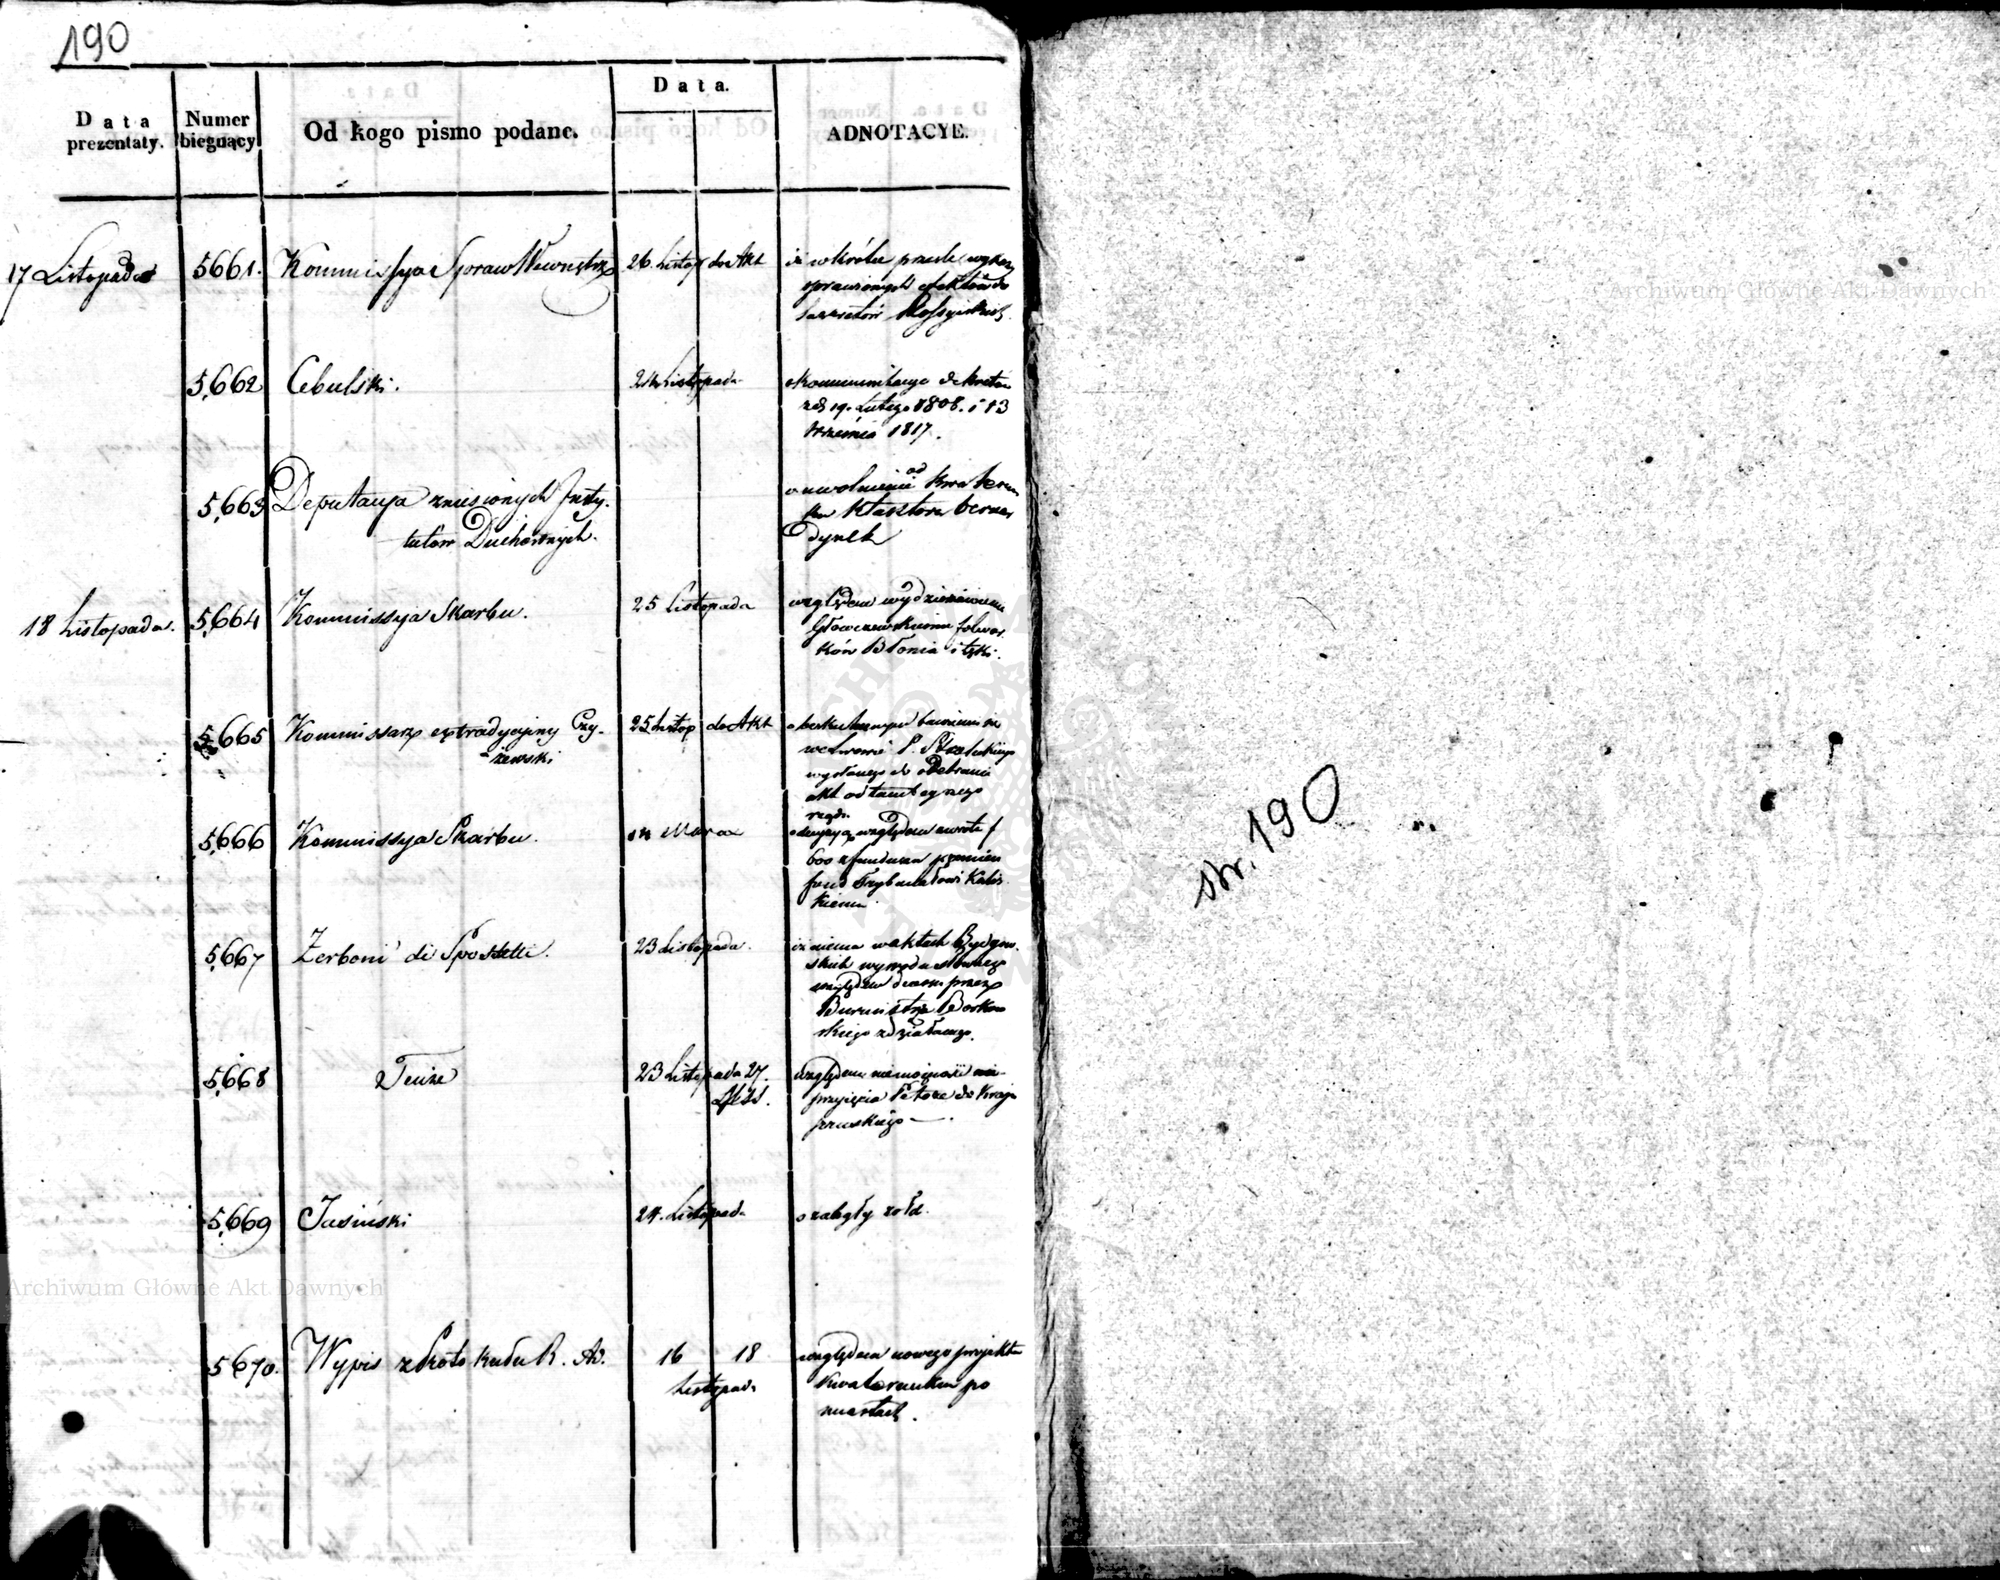 190
Data
prezentaty.
Numer
biegnący
Od kogo pismo podane.
Data.
ADNOTACYE.
17 Listopada
5661.
Kommissya Spraw Wewnętrz
26. Listop do Akt
iż wkrótce prześle wykaz
sprawionych efektów do
Lazaretów Rossyiskich
5662
Cebulski.
24 Listopada
o kommunikacye dekretów
zd. 19. Lutego 1808. i 13
Września 1817.
5663
Deputacya zniesionych Insty-
tutów Duchownych.
o uwolnienie od kwaterun
ku Klasztora Bernar
dynek
18 Listopada.
5664
Kommissya Skarbu.
25 Listopada
względem wydzierżawienia
folwar
ków Błonia i Łęki.
5665
Kommissarz extradycyjny Czy-
żewski
25 Listop do Akt
we Lwowie P.
wysłanego do odebrania
akt od tamteyszego
rządu.
5666
Kommissya Skarbu.
względem zwrotu f
600 z funduszu
Trybunałowi Kalis
kiemu
5667
Zerboni di Sposetti.
23 Listopada.
iż niema w aktach Bydgos-
skich wywodu słownego
względem przez
Burmistrza Borkow
skiego zdziałanego.
5668
Tenże
23 Listopada 27.
Akt.
względem niemożności
przyięcia do Kraju
pruskiego —.
5669
Jasiński
24. Listopada
o zaległy żołd.
5670.
Wypis z Protokułu R. Ad.
16 18
Listopada
względem nowego projektu
kwaterunku po
miastach.
str. 190
Archiwum Główne Akt Dawnych
Archiwum Główne Akt Dawnych